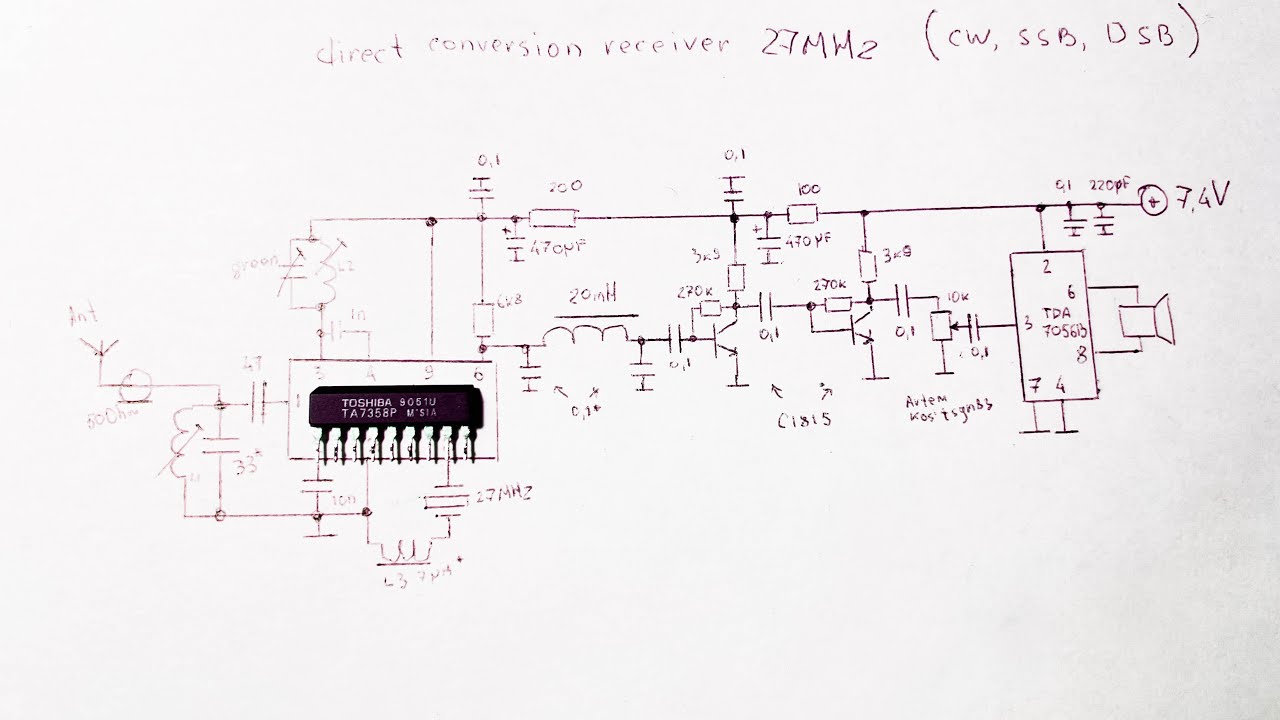 direct conversion receiver 27MHz (CW, SSB, DSB)
0,1
0,1
200
100
0,1
220µF
+
7,4V
+
470µF
+
470µF
green
L2
3k9
3k9
2
6k8
20mH
270k
270k
10k
6
Ant
1n
0,1
0,1
0,1
3
TDA
7056B
0,1
8
3
4
9
6
47
1
50Ohm
TOSHIBA 9051U
TA7358P M'SIA
0,1*
C1815
Artem
Kositsyn33
7 4
33*
L1
10n
27MHz
L3 7µH*